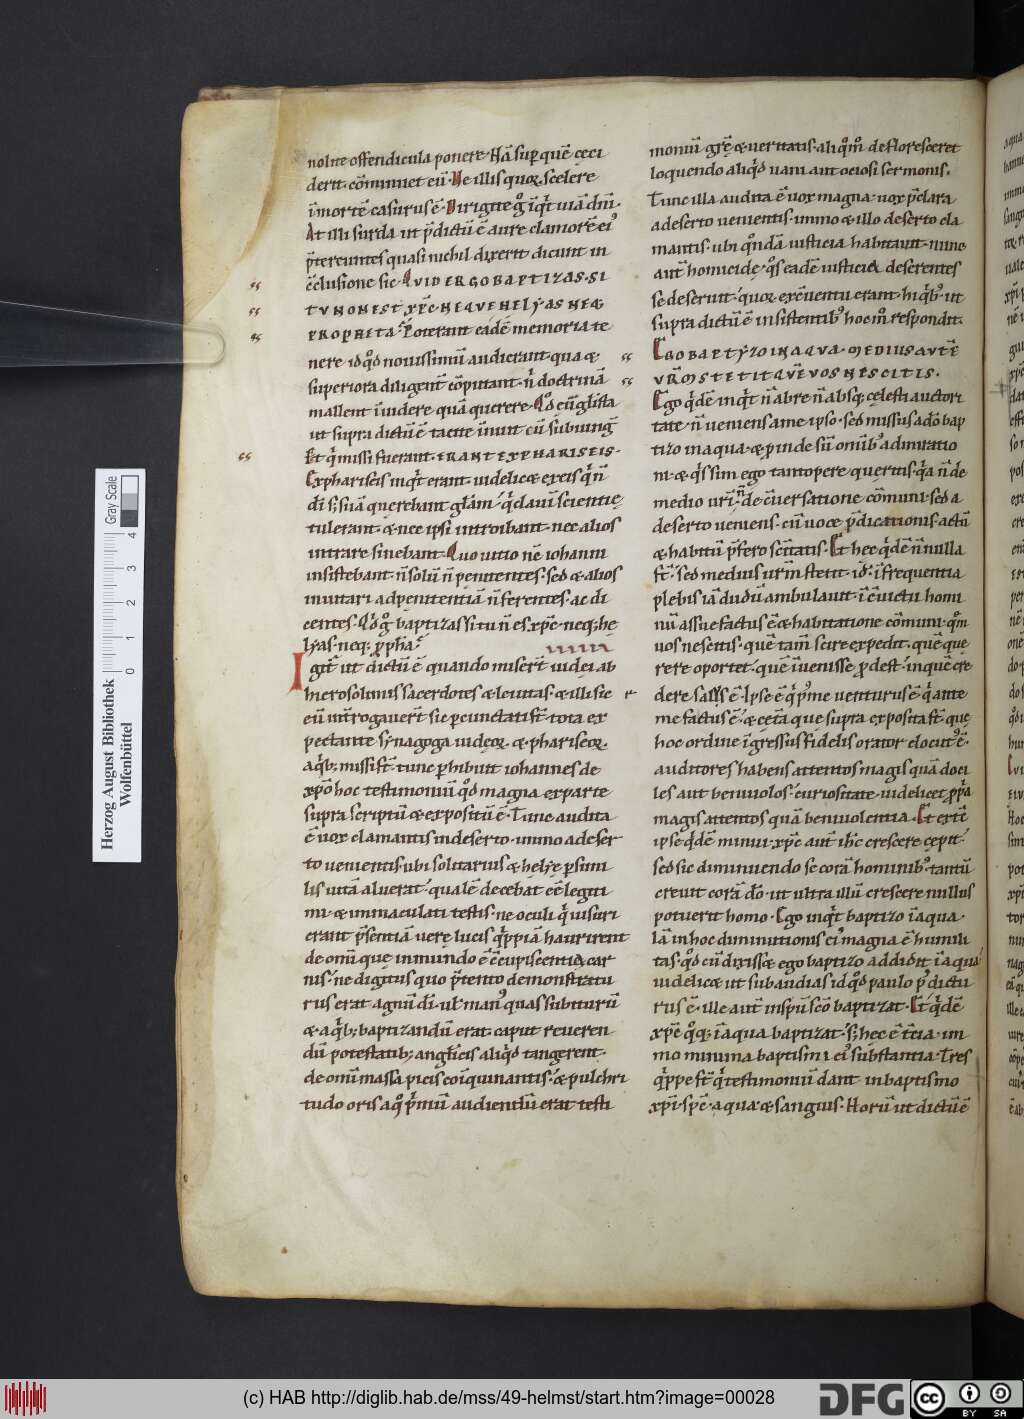 nolite offendicula ponere. Nā sup quē ceci
derit. cōminuet eū. Ne illis quoꝝ scelere
ī mortē casurus ē. Dirigite gͦ īqͥt uiā dn̄i.
At illi surda ut p̄dictū ē aure clamorē eiꝰ
p̄tereuntes quasi nichil dixerit dicunt in
c̄clusione sic. QVID ERGO BAPTIZAS. SI
TV NON EST XPC̄. NEQVE HELYAS NEQƷ
PROPHETA. Poterant eadē memoria te
nere id qͦd nouissimū audierant. qua &
superiora diligent̄ cōputant. n̄ doctrinā
mallent īuidere quā querere. Qͦd eūgl̄ista
ut supra dictū ē tacite īnuit cū subiunḡ
Et qͥ missi fuerant. ERANT EX PHARISEIS.
Ex phariseis inqͥt erant. uidelic& ex eis qͥ n̄
dī s; suā querebant gl̄am. qͥ clauī scientię
tulerant. & nec ipsi introibant. nec alios
intrare sinebant. Quo uitio nē iohanni
insistebant. n̄ solū n̄ penitentes. sed & alios
inuitari ad penitentiā n̄ ferentes. ac di
centes. Qͥd gͦ baptizas si tu n̄ es xp̄c. neq; he
lyas. neq; pph̄a.
Igit̄ ut dictū ē quando miserт̄ iudei ab
hierosolimis sacerdotes & leuitas. & illi sic
eū int̄rogauert̄ sic pcunctati st̄. tota ex
pectante synagoga iudeoꝝ. & phariseoꝝ.
a qͥb; missi st̄. tunc phibuit iohannes de
xp̄o hoc testimoniū qͦd magna ex parte
supra scriptū & expositū ē. Tunc audita
ē uox clamantis in deserto. immo a deser
to uenientis. ubi solitarius & helyę psimi
lis uitā aluerat. qualē decebat eē legiti
mi & immaculati testis. ne oculi qͥ uisuri
erant p̄sentiā uere lucis qͥppiā haurirent
de omī que in mundo ē c̄cupiscentia car
nis. ne digitus quo p̄tento demonstratu
rus erat agnū dī. ut manꝰ quas subiturū
& a qͥb; baptizandū erat caput reueren
dū potestatib; anglicis aliqͥd tangerent.
de omī massa picis coinquinantis. & pulchri
tudo oris a qͦ p̄mū audiendū erat testi
moniū grē & ueritatis. aliqͦm̄ defloresceret
loquendo aliqͥd uani aut ociosi sermonis.
Tunc illa audita ē uox magna. uox p̄clara
a deserto uenientis. immo & illo deserto cla
mantis. ubi qͦndā iusticia habitauit. nunc
aut̄ homicide. qͦs eadē iusticia deserentes
se deseruit. quoꝝ ex c̄uentu erant hi qͥbꝰ ut
supra dictū ē insistentibꝰ hoc m̄ respondit.
EGO BAPTYZO IN AQVA. MEDIUS AVTĒ
VR̄M STETIT QVĒ VOS NESCITIS.
Ego qͥdē inqͥt n̄ ab re n̄ absq; celesti auctori
tate. n̄ ueniens a me ipso. sed missus a dō bap
tizo in aqua. & pinde sū omībꝰ admiratio
ni. & qͥs sim ego tantopere queritis. qͥa n̄ de
medio uri. n̄ de c̄uersatione cōmuni. sed a
deserto ueniens. cū uoce p̄dicationis. actū
& habitū p̄fero sc̄itatis. Et hec qͥdē n̄ nulla
st̄. sed medius urm̄ stetit. id ī frequentia
plebis iā dudū ambulauit. ī c̄uictu homi
nū assuefactus ē & habitatione cōmuni. qͦm
uos nescitis. quē tam̄ scire expedit. quē que
rere oportet. quē īuenisse pdest. in quē cre
dere salus ē. Ipse ē qͥ p̄me uenturus ē. qͥ ante
me factus ē. & cet̄a que supra exposita st̄. que
hoc ordine īgressus fidelis orator elocutꝰ ē.
auditores habens attentos magis quā doci
les aut beniuolos. curiositate uidelicet ppͥa
magis attentos quā beniuolentia. Et ert̄ē
ipse qͥdē minui. xpc̄ aut̄ ih̄c crescere cepit.
sed sic diminuendo se corā hominibꝰ tantū
creuit corā dō. ut ultra illū crescere nullus
potuerit homo. Ego inqͥt baptizo ī aqua.
Iā in hoc diminutionis eiꝰ magna ē humili
tas. qͦd cū dixiss& ego baptizo. addidit ī aqua
uidelic& ut subaudias id qͦd paulo pꝰ dictu
rus ē. ille aut̄ in spū scō baptizat. Et qͥdē
xpc̄ qͦq; ī aqua baptizat. s; hec ē t̄cia. im
mo minima baptismi eiꝰ substantia. Tres
qͥppe st̄ qͥ testimoniū dant in baptismo
xpī. spc̄. aqua. & sanguis. Horū ut dictū ē
(c) HAB http://diglib.hab.de/mss/49-helmst/start.htm?image=00028
DFG
cc BY SA
Herzog August Bibliothek
Wolfenbüttel
Gray Scale
0 1 2 3 4